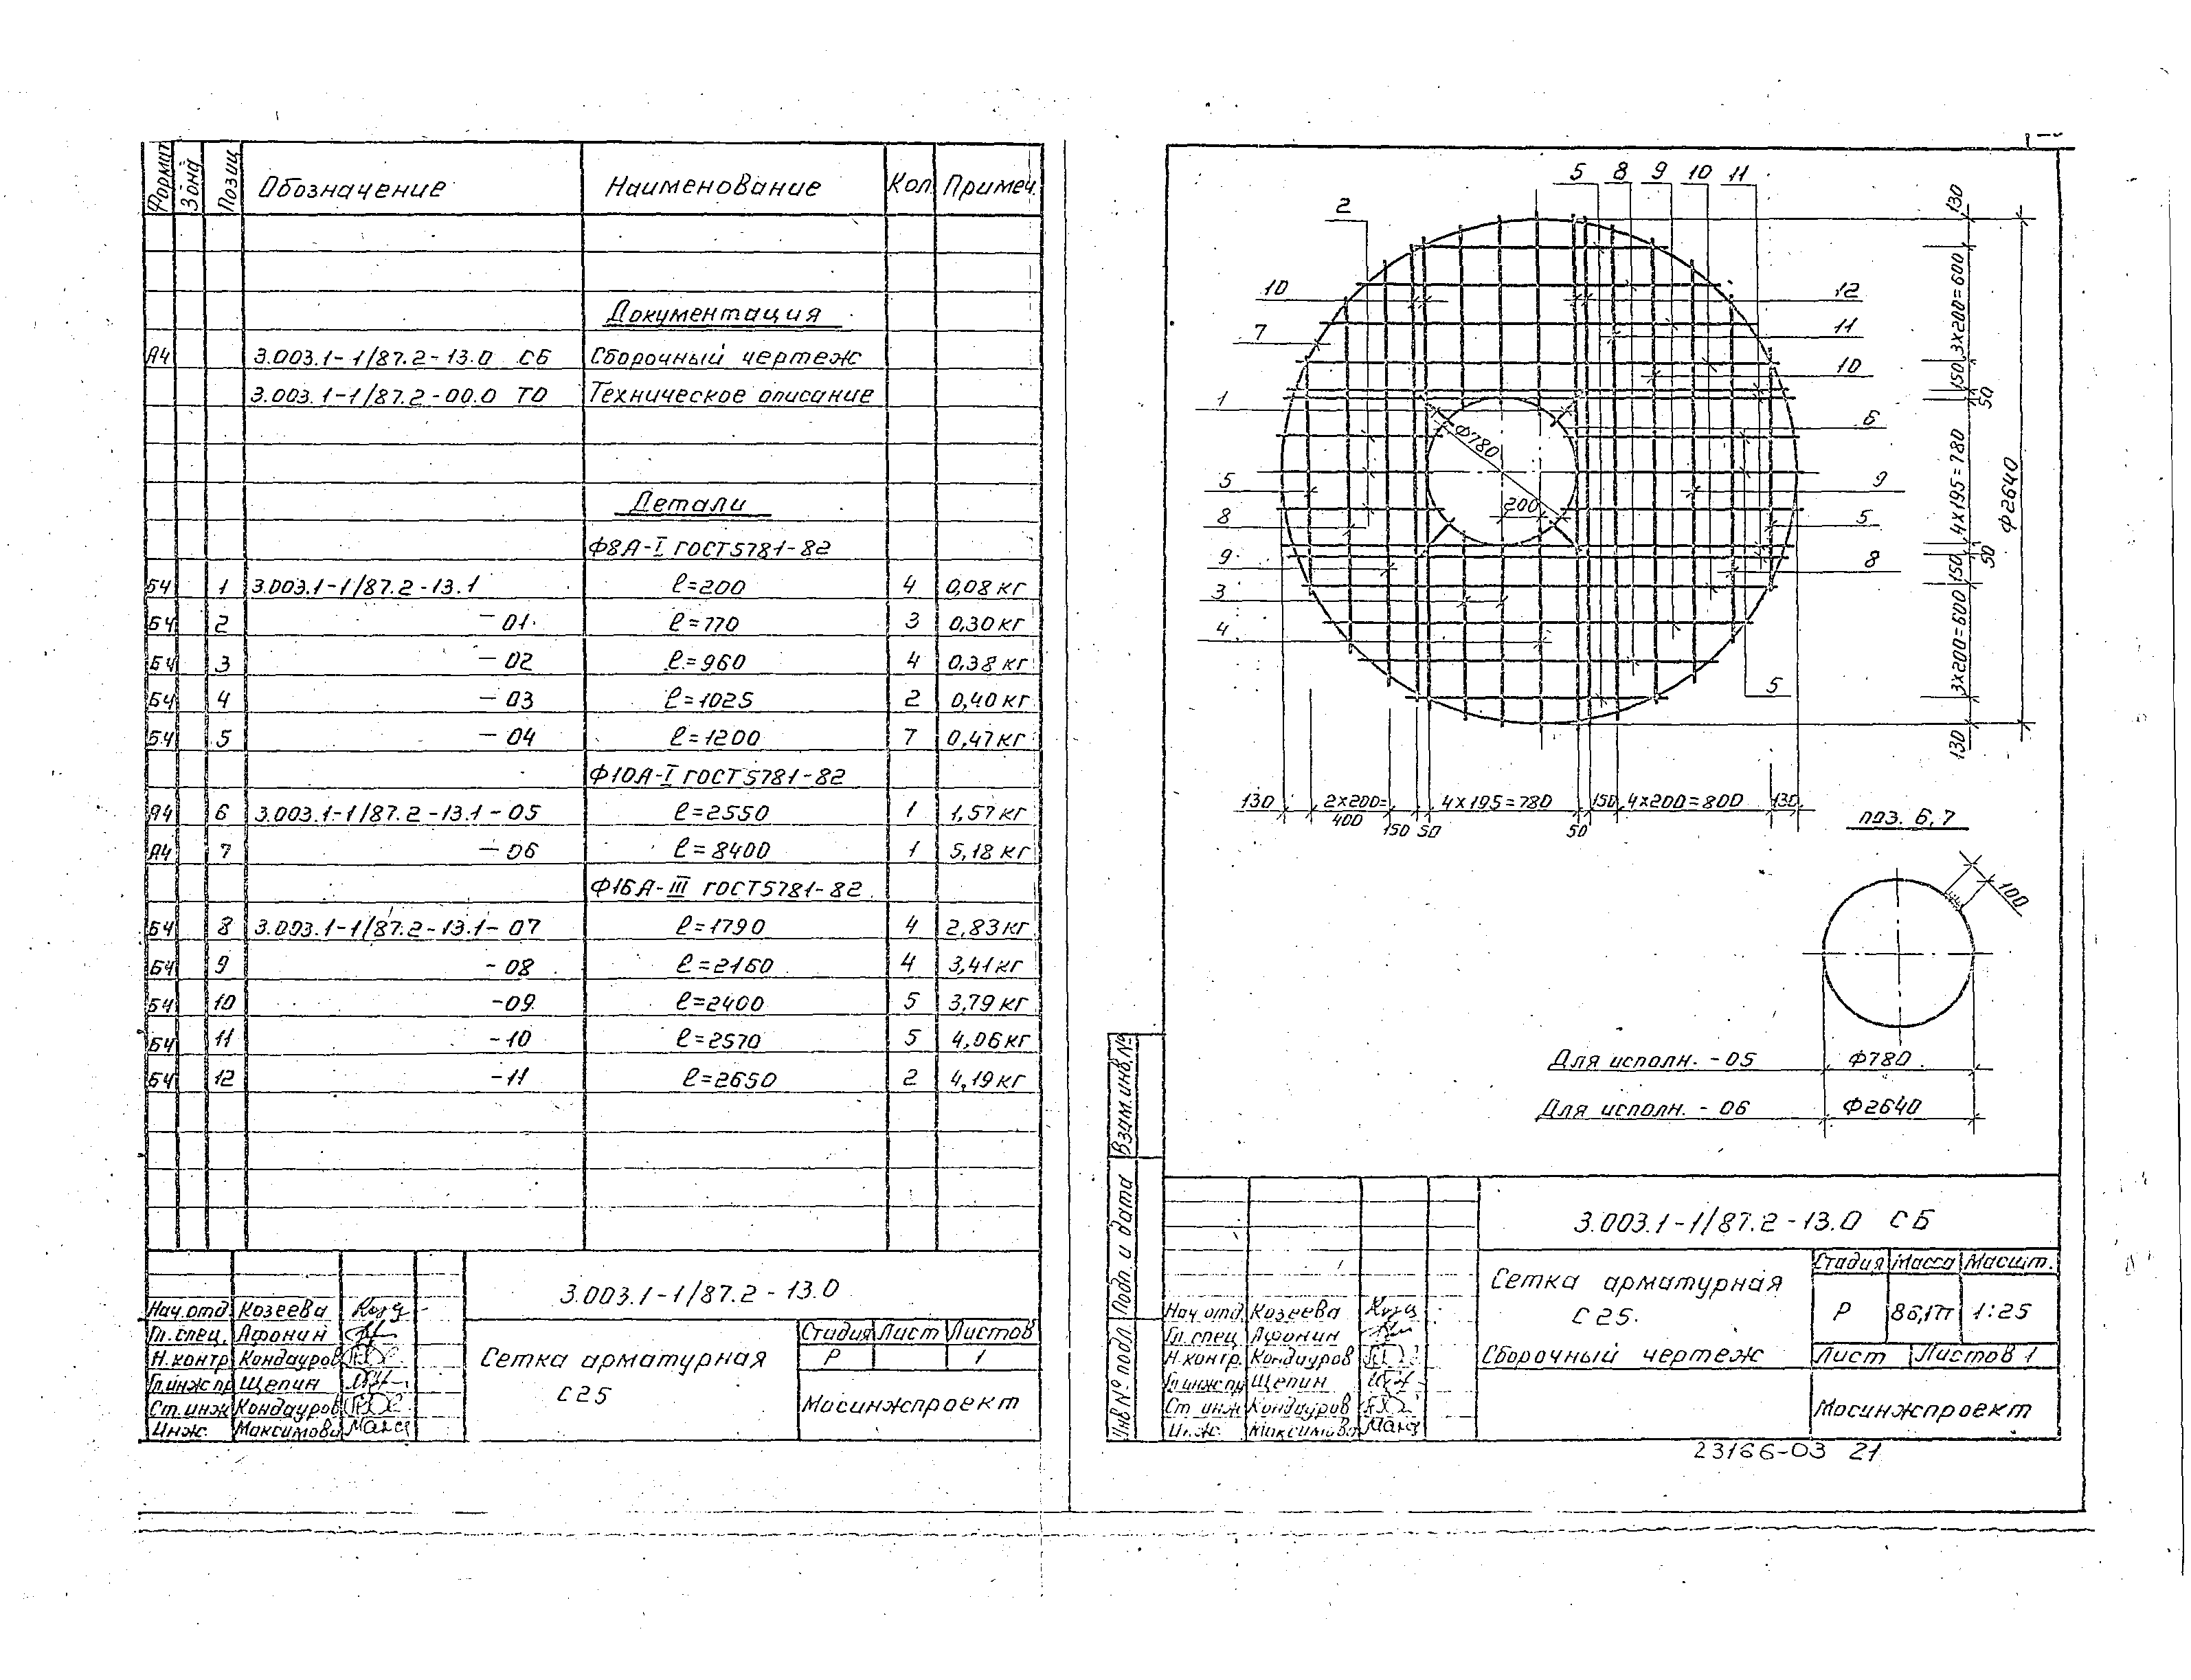 Формат Зона Позиц Обозначение Наименование Кол. Примеч.
Документация
А4 3.003.1-1/87.2-13.0 СБ Сборочный чертеж
3.003.1-1/87.2-00.0 ТО Техническое описание
Детали
Ф8А-I ГОСТ5781-82
Б4 1 3.003.1-1/87.2-13.1 ℓ=200 4 0,08 кг
Б4 2 -01 ℓ=770 3 0,30 кг
Б4 3 -02 ℓ=960 4 0,38 кг
Б4 4 -03 ℓ=1025 2 0,40 кг
Б4 5 -04 ℓ=1200 7 0,47 кг
Ф10А-I ГОСТ5781-82
А4 6 3.003.1-1/87.2-13.1-05 ℓ=2550 1 1,57 кг
А4 7 -06 ℓ=8400 1 5,18 кг
Ф16А-III ГОСТ5781-82
Б4 8 3.003.1-1/87.2-13.1-07 ℓ=1790 4 2,83 кг
Б4 9 -08 ℓ=2160 4 3,41 кг
Б4 10 -09 ℓ=2400 5 3,79 кг
Б4 11 -10 ℓ=2570 5 4,06 кг
Б4 12 -11 ℓ=2650 2 4,19 кг
3.003.1-1/87.2-13.0
Нач.отд. Козеева
Гл.спец. Афонин
Н.контр. Кондауров
Гл.инж.пр Щепин
Ст.инж. Кондауров
Инж. Максимова
Сетка арматурная
С25
Стадия Лист Листов
Р 1
Мосинжпроект
5 8 9 10 11
2
10
7
1
5
8
9
3
4
12
11
10
6
9
5
8
5
Ф780
200
130
3х200=600
150
50
4х195=780
50
150
3х200=600
130
Ф2640
130 2х200=400 150 50 4х195=780 50 150 4х200=800 130
поз. 6,7
100
Для исполн. -05 Ф780
Для исполн. -06 Ф2640
Взам.инв.№
Подп. и дата
Инв.№ подл.
3.003.1-1/87.2-13.0 СБ
Нач.отд. Козеева
Гл.спец. Афонин
Н.контр. Кондауров
Гл.инж.пр Щепин
Ст.инж Кондауров
Инж. Максимова
Сетка арматурная
С25.
Сборочный чертеж
Стадия Масса Масшт.
Р 1:25
Лист Листов 1
Мосинжпроект
23166-03 21